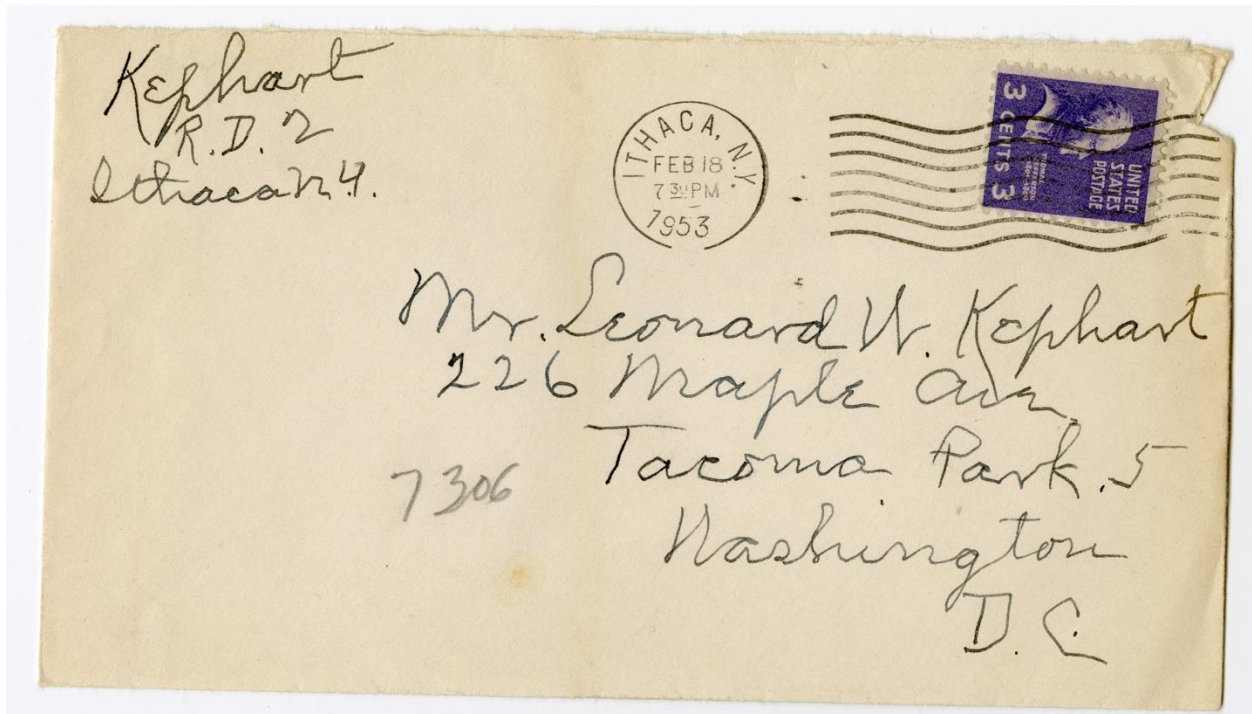 Kephart
R.D. 2
Ithaca N.Y.
ITHACA, N.Y.
FEB 18
7 30 PM
1953
3 CENTS 3
UNITED
STATES
POSTAGE
Mr. Leonard W. Kephart
226 Maple Ave
Tacoma Park. 5
Washington
D.C.
7306